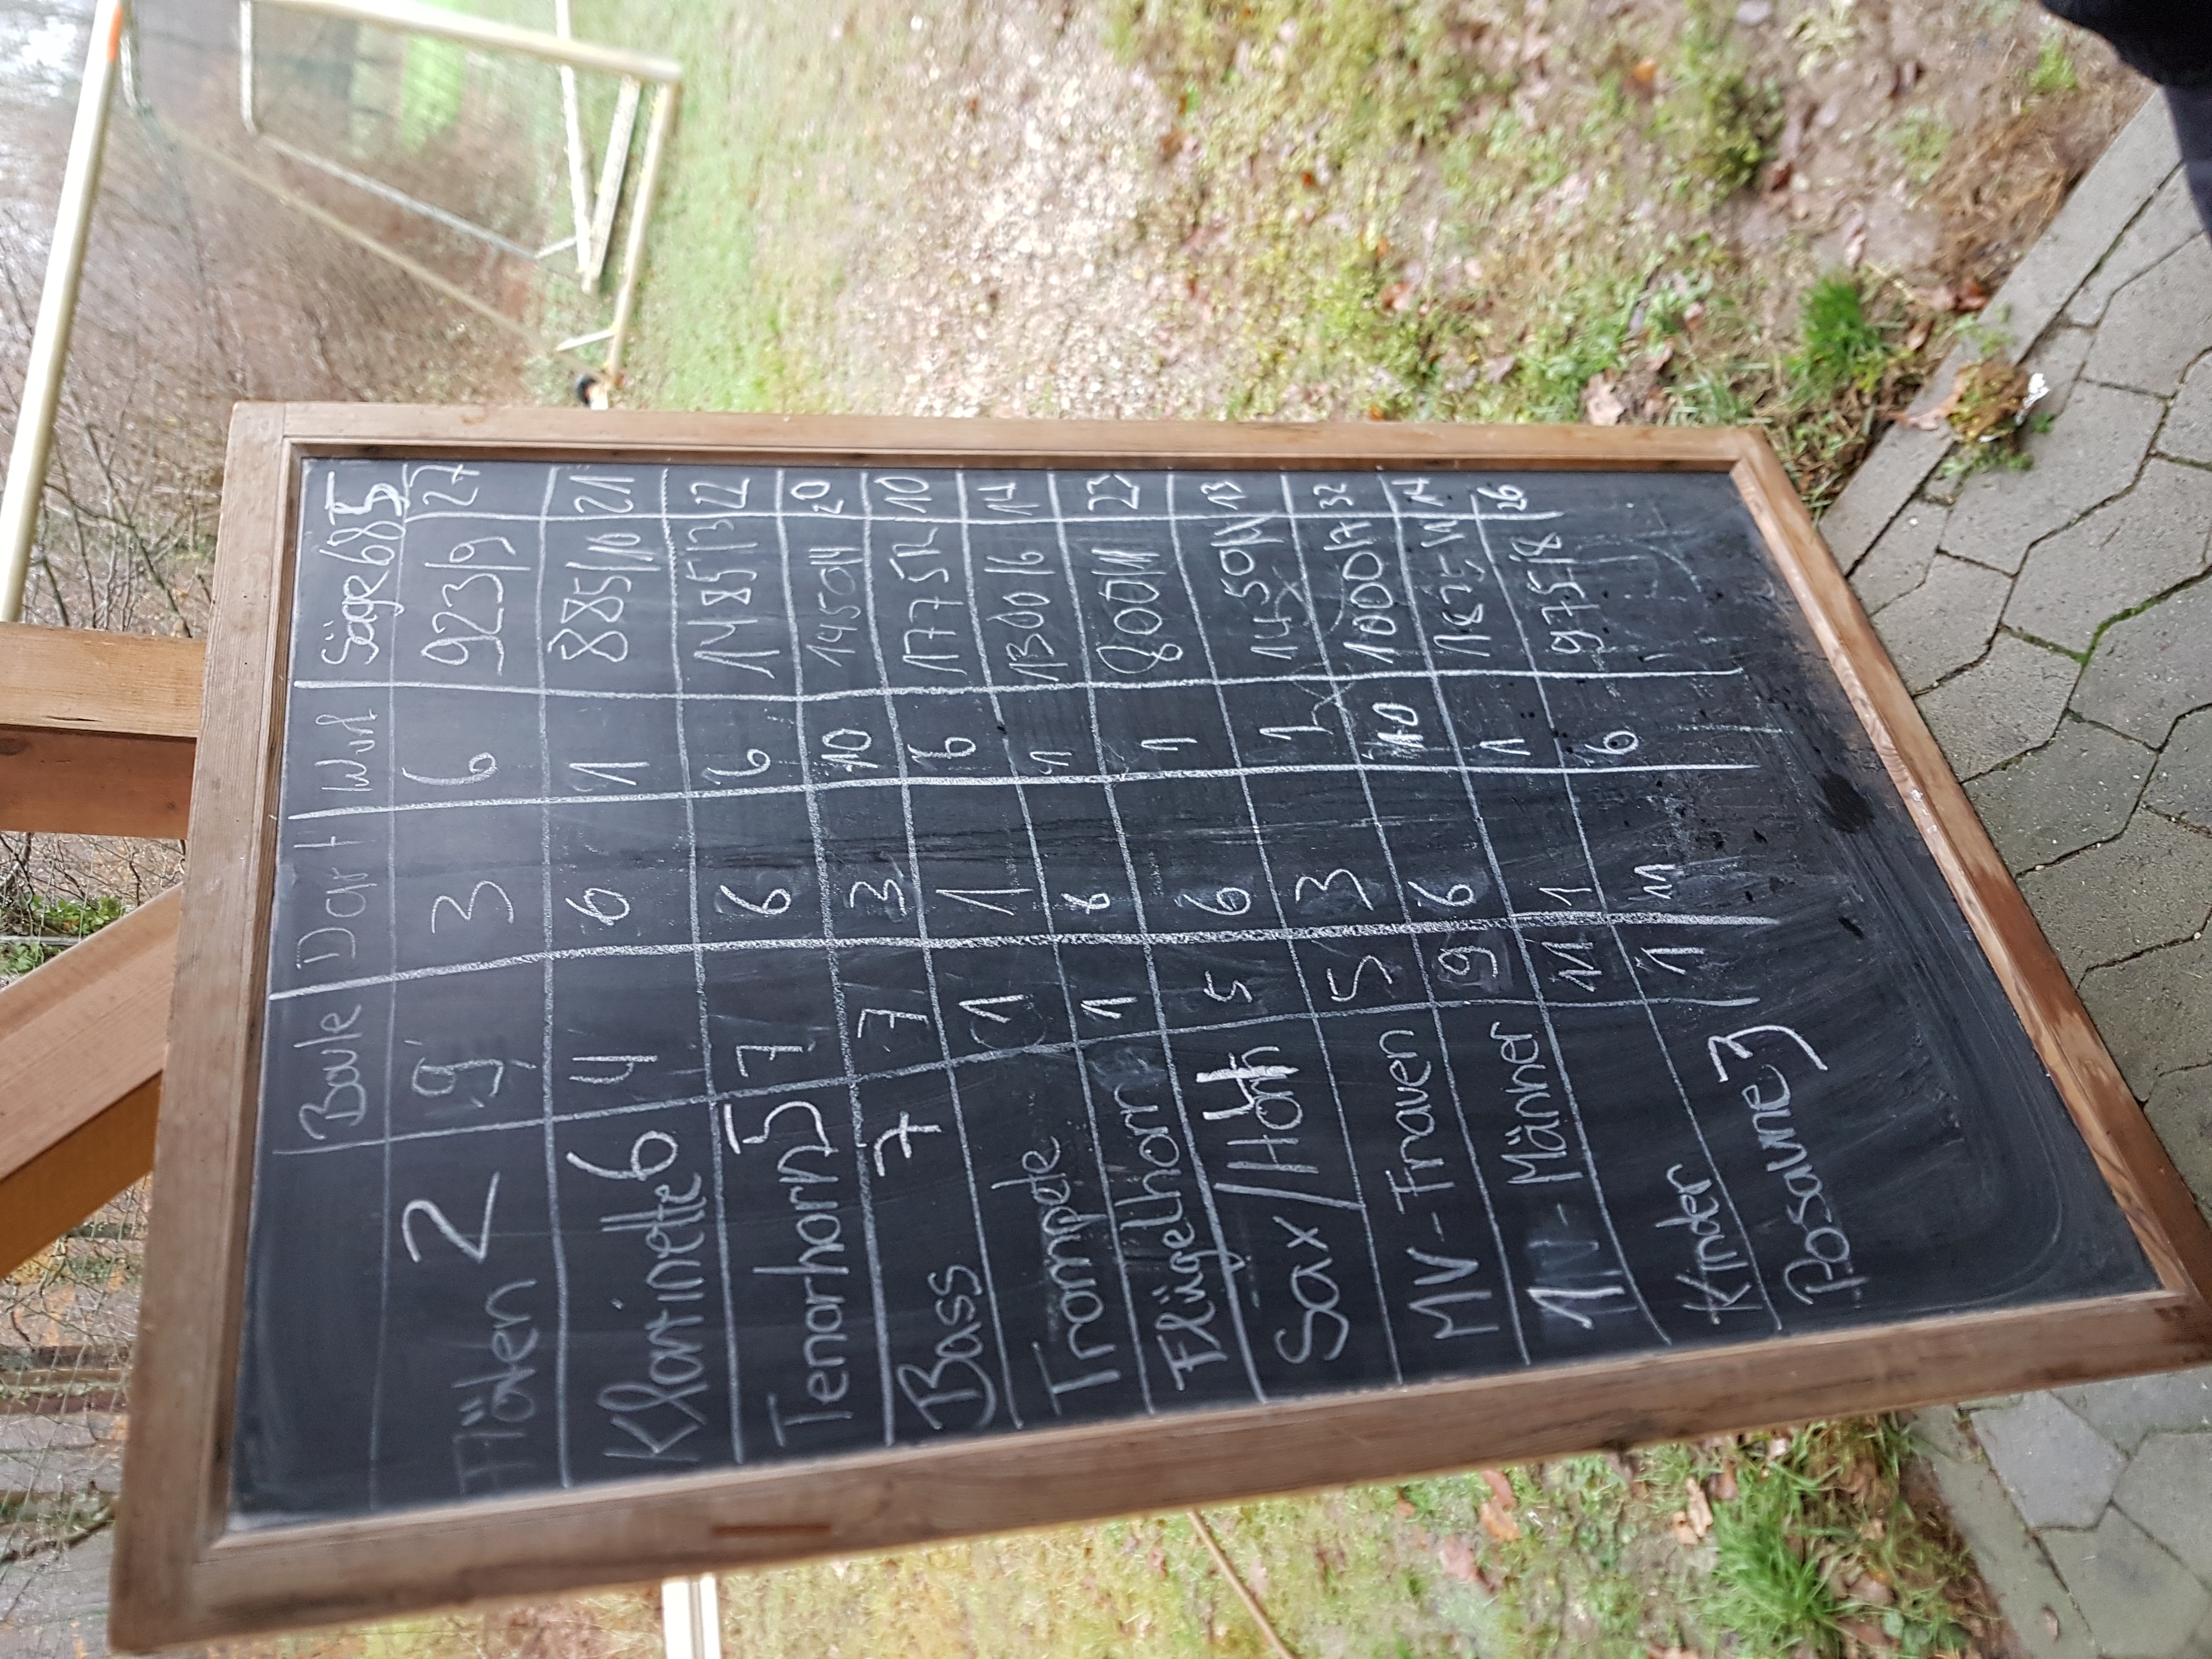 Boule Dart Wurf Säge 685
Flöten 2 9 3 6 923/9 27
Klarinette 6 4 6 1 885/10 21
Tenorhorn 5 7 6 6 1485/3 22
Bass 7 7 3 10 1450/4 20
Trompete 1 1 6 1775/2 10
Flügelhorn 1 1 1300/6
Sax/Horn 5 6 1 800/11 23
MV-Frauen 5 3 1 1450/4 13
MV-Männer 9 6 10 1000/7 32
Kinder 11 1 1 1875/1 14
Posaune 3 1 11 6 975/8 26